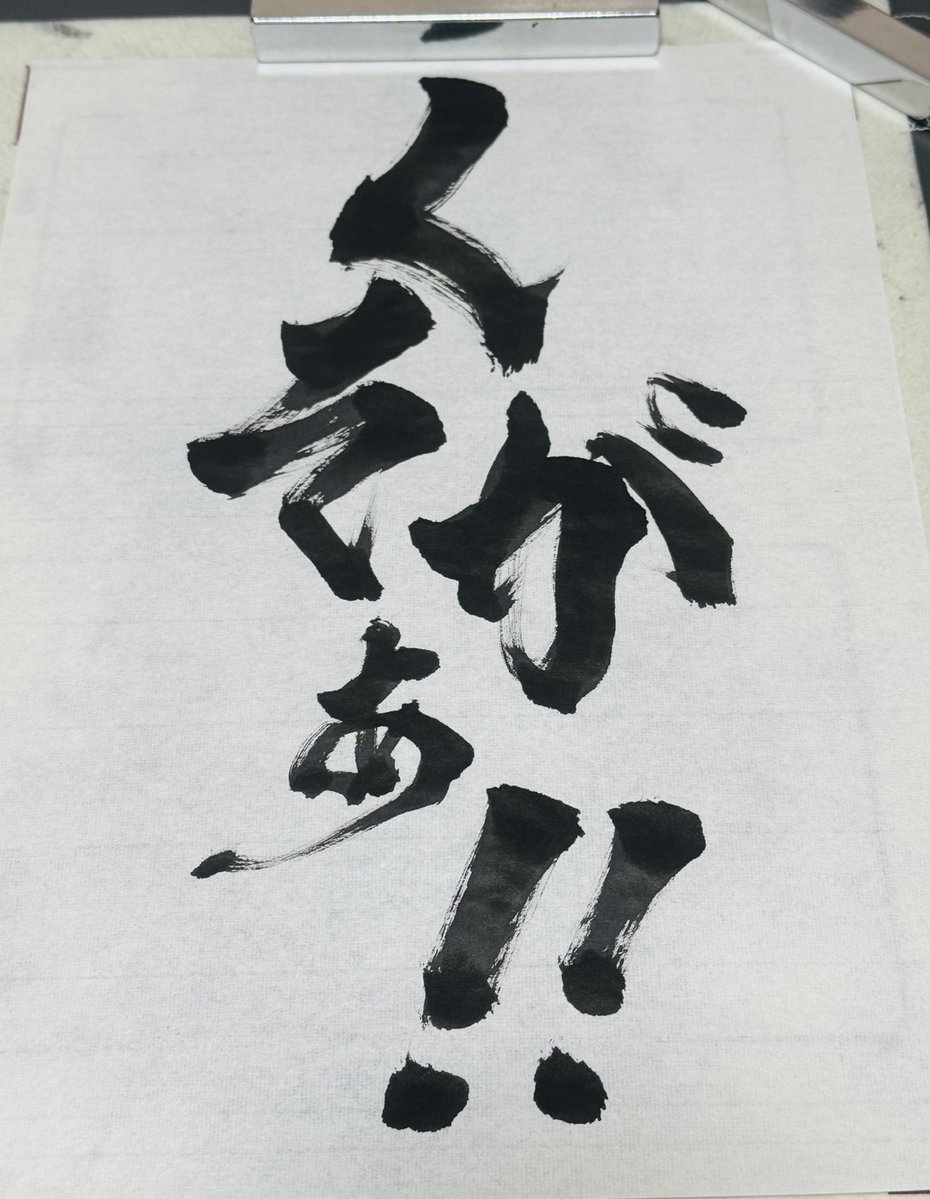 くそがぁ!!